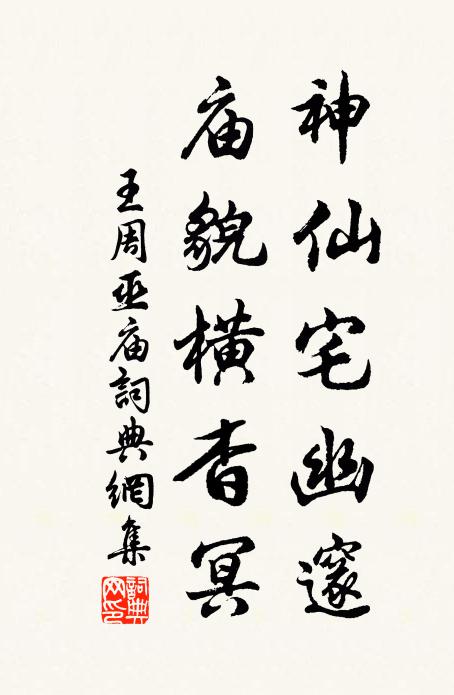 神仙宅幽邃
庙貌横杳冥
王周巫庙詞典網集
詞典网印